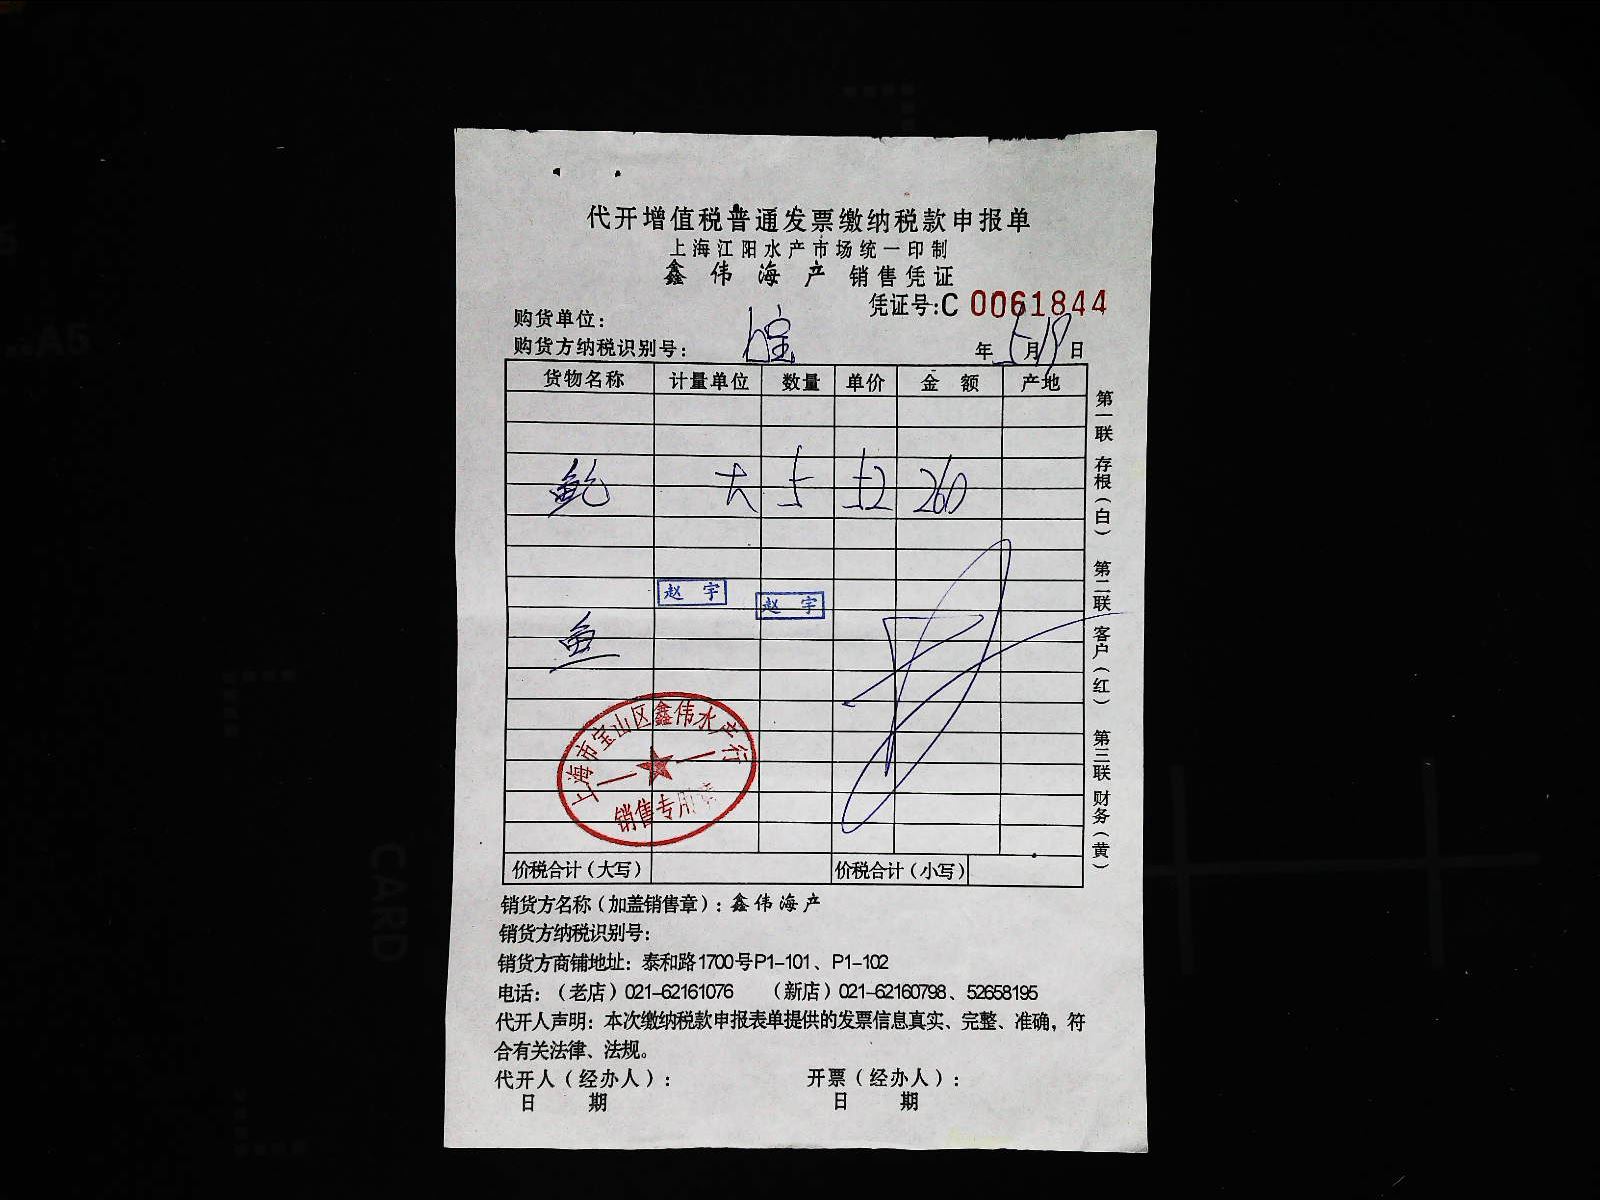 代开增值税普通发票缴纳税款申报单
上海江阳水产市场统一印制
鑫伟海产 销售凭证
凭证号:C 0061844
购货单位：
购货方纳税识别号：
年 5月19日
货物名称 计量单位 数量 单价 金额 产地
鲍 大 5 52 260
赵宇
赵宇
鱼
上海市宝山区鑫伟水产行
销售专用章
价税合计（大写） 价税合计（小写）
第一联 存根（白） 第二联 客户（红） 第三联 财务（黄）
销货方名称（加盖销售章）：鑫伟海产
销货方纳税识别号：
销货方商铺地址：泰和路1700号P1-101、P1-102
电话：（老店）021-62161076 （新店）021-62160798、52658195
代开人声明：本次缴纳税款申报表单提供的发票信息真实、完整、准确，符
合有关法律、法规。
代开人（经办人）： 开票（经办人）：
日 期 日 期
CARD
A5